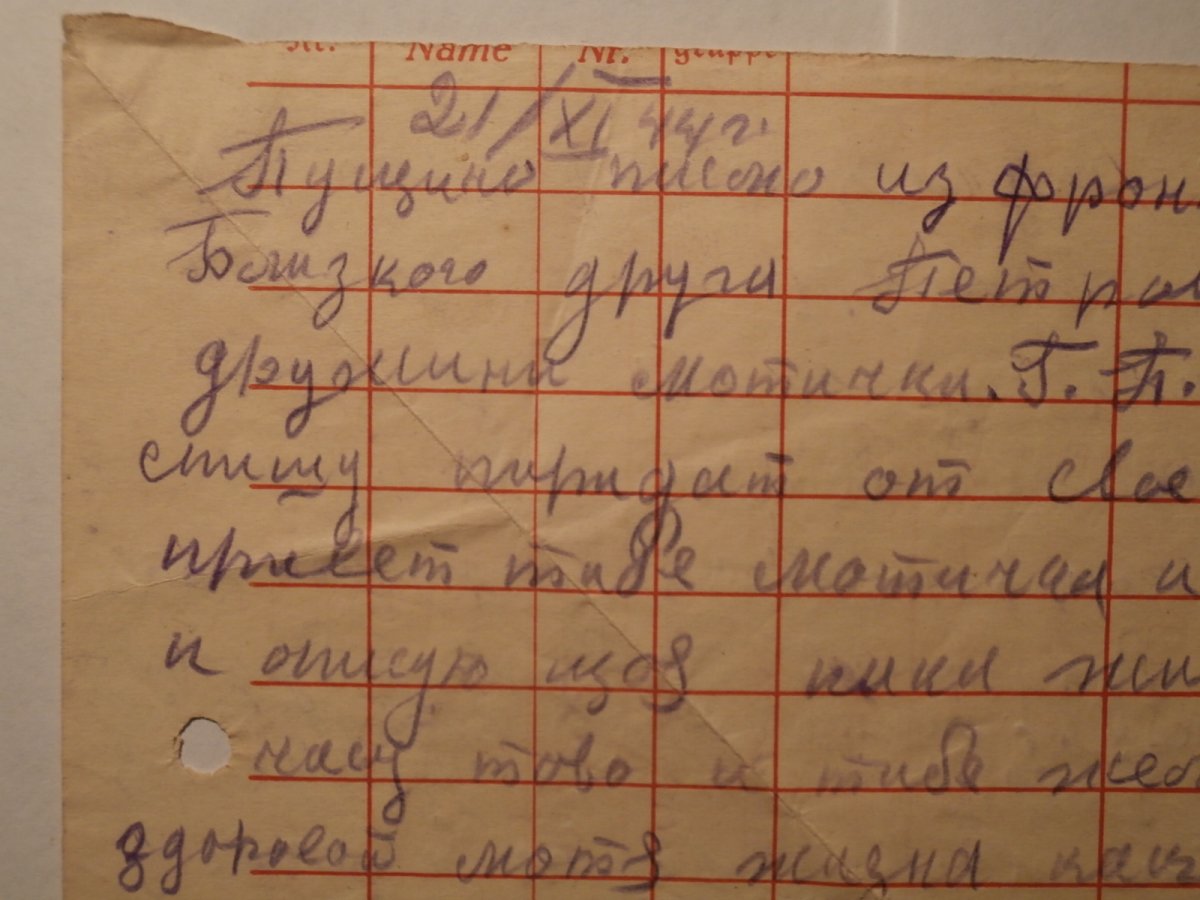 Name Nr. gruppe
21/XI 44 г.
Пущино писмо из фрон
Близкого друга Петра
дружини мотички. Г. П.
спишу пиридат от свое
привет тибе мотичка и
и описую щоя
часу тово и тибе же
здоровой мотя жизна как